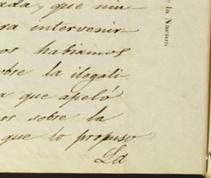 ada, que nin
ra intervenir
os habiamos
obre la ilegali
a que apeló
os sobre la
que lo propuso.
La
de la Nacion